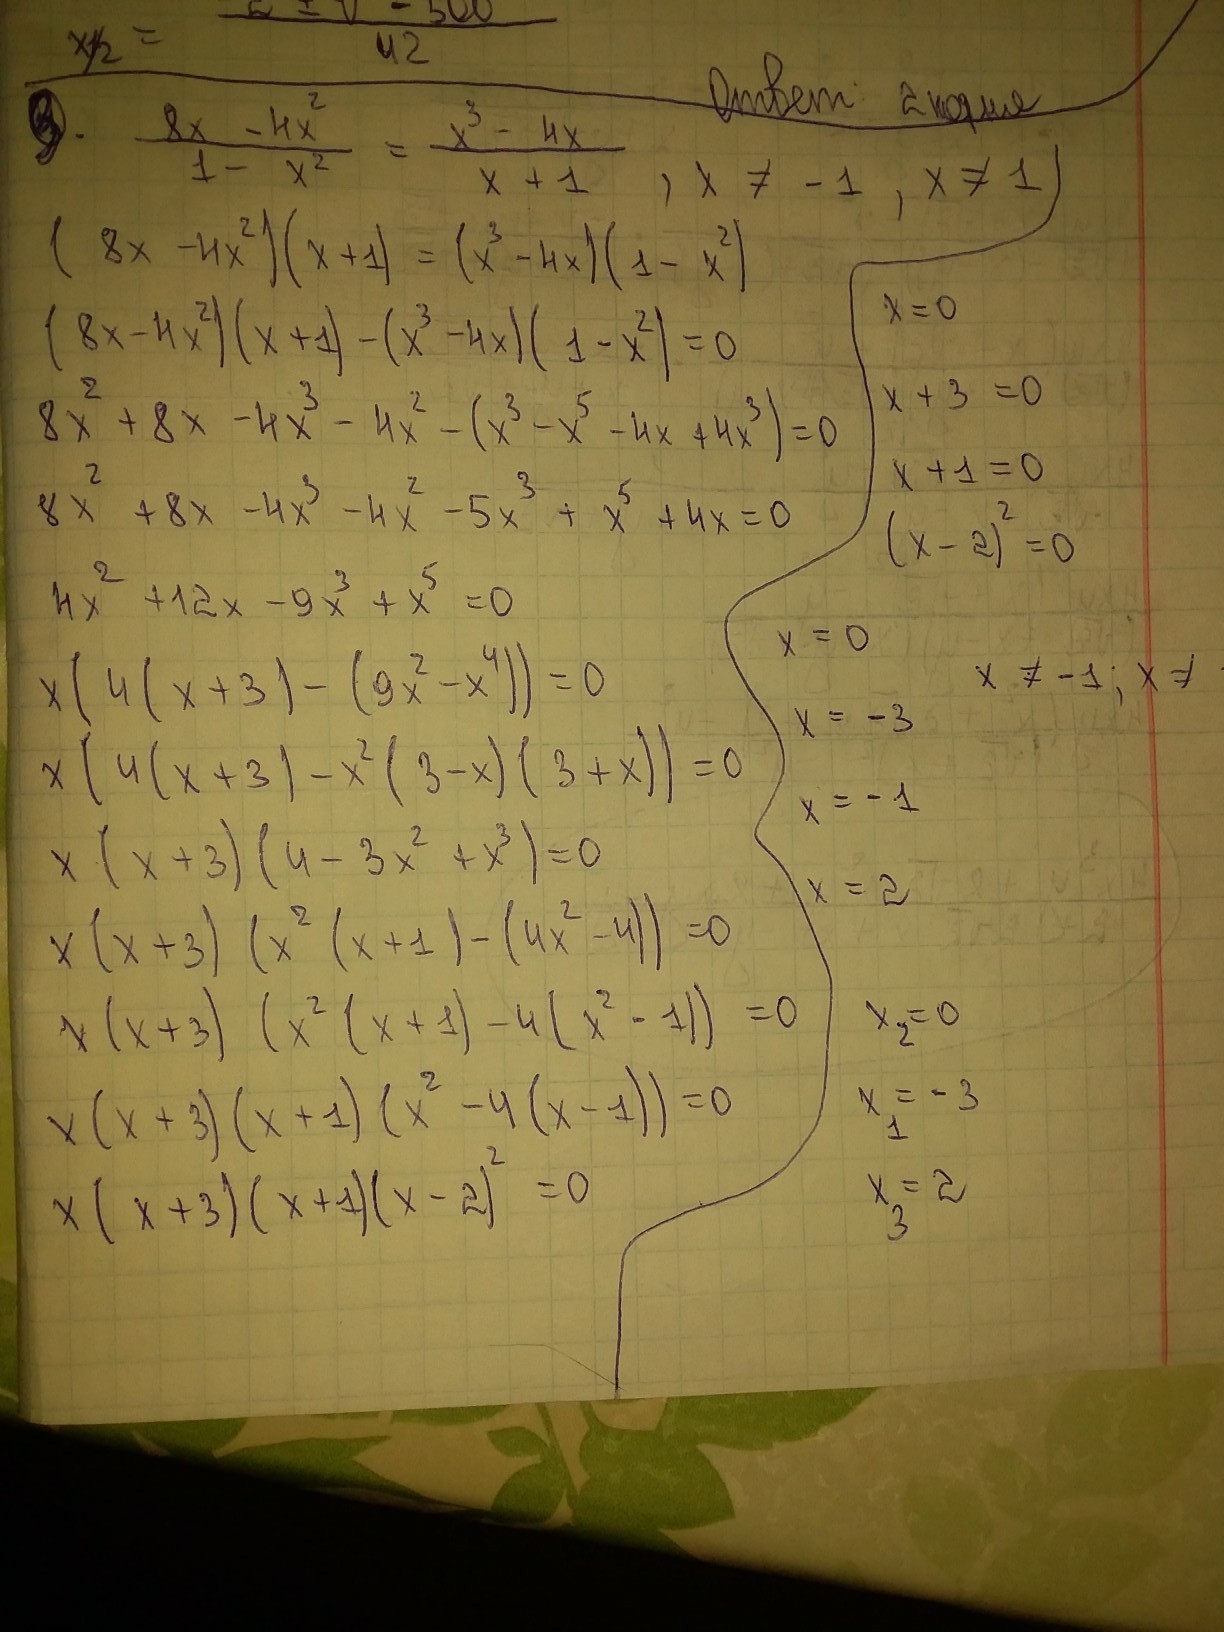 x1/2 = (2 ± √ - 500) / 42
Ответ: 2 корня
9. (8x - 4x²)/(1 - x²) = (x³ - 4x)/(x + 1) , x ≠ -1 , x ≠ 1
(8x - 4x²)(x+1) = (x³ - 4x)(1 - x²)
(8x - 4x²)(x+1) - (x³ - 4x)(1 - x²) = 0
8x² + 8x - 4x³ - 4x² - (x³ - x⁵ - 4x + 4x³) = 0
8x² + 8x - 4x³ - 4x² - 5x³ + x⁵ + 4x = 0
4x² + 12x - 9x³ + x⁵ = 0
x(4(x+3) - (9x² - x⁴)) = 0
x(4(x+3) - x²(3-x)(3+x)) = 0
x(x+3)(4 - 3x² + x³) = 0
x(x+3)(x²(x+1) - (4x² - 4)) = 0
x(x+3)(x²(x+1) - 4(x² - 1)) = 0
x(x+3)(x+1)(x² - 4(x-1)) = 0
x(x+3)(x+1)(x-2)² = 0
x = 0
x + 3 = 0
x + 1 = 0
(x - 2)² = 0
x = 0
x ≠ -1; x ≠
x = -3
x = -1
x = 2
x₂ = 0
x₁ = -3
x₃ = 2